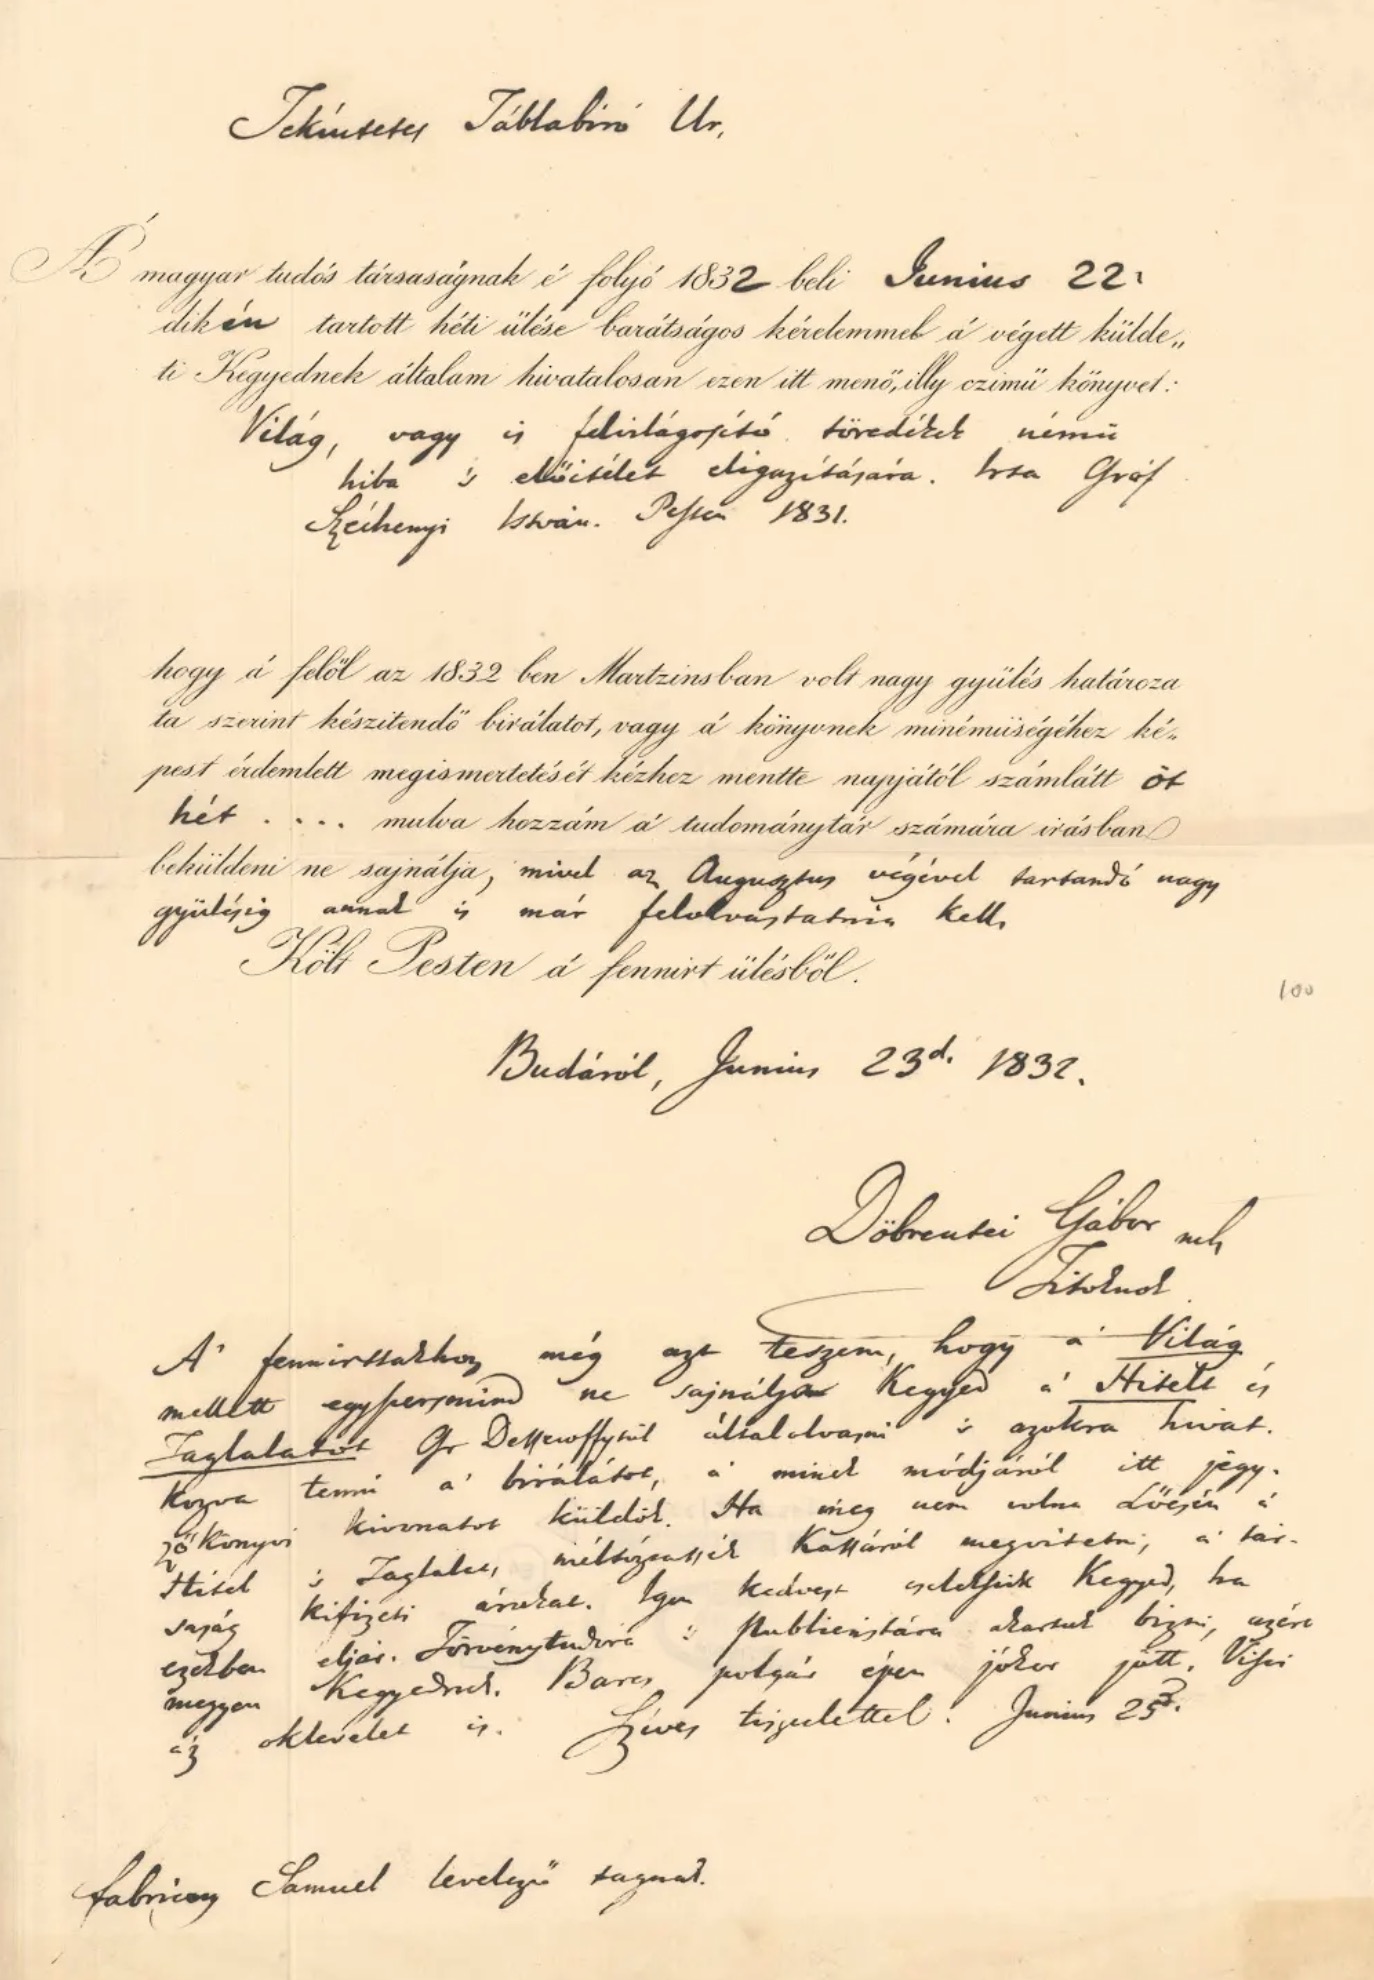 Tekintetes Táblabíró Ur,
Á magyar tudós társaságnak é folyó 1832 beli Junius 22:
dikén tartott héti ülése barátságos kérelemmel á végett külde„
ti Kegyednek általam hivatalosan ezen itt menő, illy czimü könyvet:
Világ, vagy is felvilágosító töredékek némü
hiba 's előitélet eligazítására. Irta Gróf
Széchenyi István. Pesten 1831.
hogy á felől az 1832 ben Martziusban volt nagy gyülés határoza
ta szerint készitendő birálatot, vagy á könyvnek minémüségéhez ké„
pest érdemlett megismertetését kézhez mentte napjától számlátt öt
hét . . . . mulva hozzám á tudománytár számára irásban
beküldeni ne sajnálja, mivel az Augusztus végével tartandó nagy
gyülésig annak is már felolvastatnia kell.
Költ Pesten á fennirt ülésből.
100
Budáról, Junius 23d. 1832.
Döbrentei Gábor mk
Titoknok
A' fennirttakhoz még azt teszem, hogy a' Világ
mellett egyszersmind ne sajnálja Kegyed a' Hitelt és
Taglalatot Gr Dessewffytől általolvasni 's azokra hivat.
kozva tenni a' birálatot, a' minek módjáról itt jegy.
zőkönyvi kivonatot küldök. Ha meg nem volna Lőcsén a'
Hitel 's Taglalat, méltóztassék Kassáról megvitetni, a' tár.
saság kifizeti árukat. Igen kedvest cselekszik Kegyed, ha
ezekben eljár. Törvénytudóra 's Publicistára akartuk bizni, azért
megyen Kegyednek. Barcs polgár épen jókor jött. Viszi
az oklevelet is. Szíves tisztelettel. Junius 25d.
Fabriczy Samuel levelező tagnak.